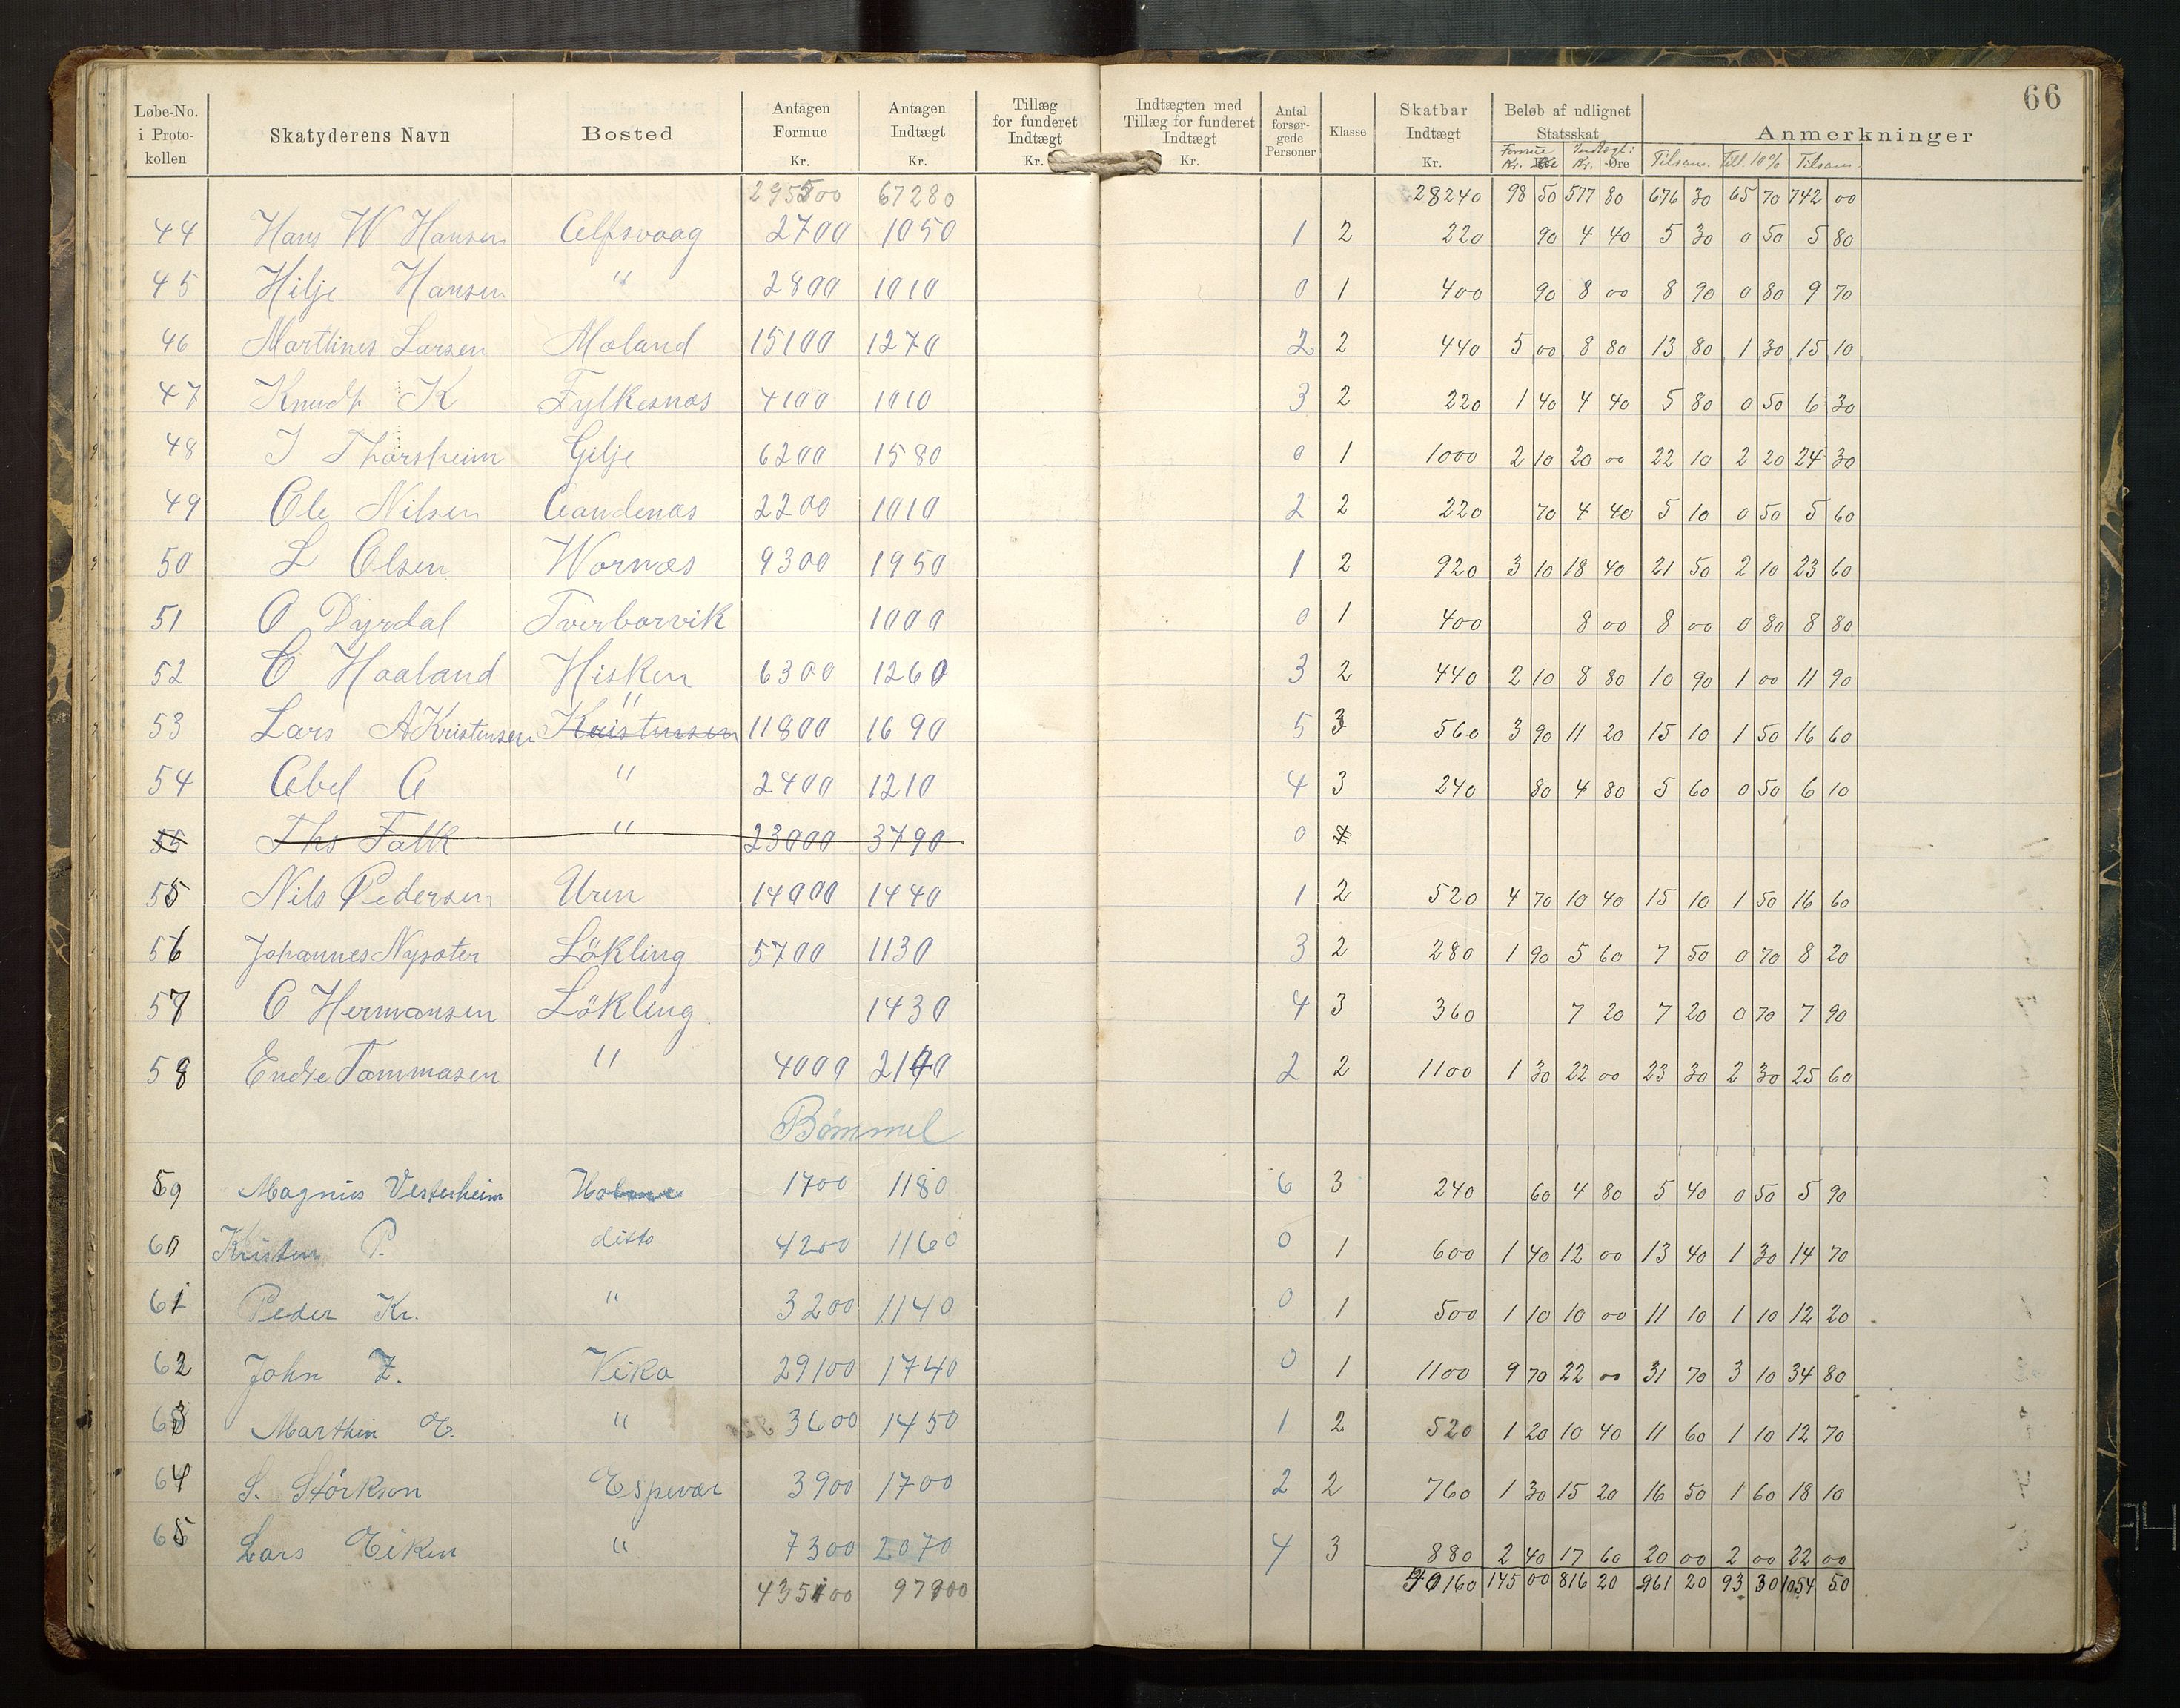 66
Løbe-No. i Protokollen | Skatyderens Navn | Bosted | Antagen Formue Kr. | Antagen Indtægt Kr. | Tillæg for funderet Indtægt Kr. | Indtægten med Tillæg for funderet Indtægt Kr. | Antal forsørgede Personer | Klasse | Skatbar Indtægt Kr. | Beløb af udlignet Statsskat Formue Kr. Øre Indtægt: Kr. Øre | Anmerkninger Tilsam. Till. 10% Tilsam.
295500 67280 28240 98 50 577 80 676 30 65 70 742 00
44 Hans W Hansen Alfsvaag 2700 1050 1 2 220 90 4 40 5 30 0 50 5 80
45 Hilje Hansen " 2800 1010 0 1 400 90 8 00 8 90 0 80 9 70
46 Marthines Larsen Moland 15100 1270 2 2 440 5 00 8 80 13 80 1 30 15 10
47 Knudt K Fylkesnas 4100 1010 3 2 220 1 40 4 40 5 80 0 50 6 30
48 I Tharsheim Gilje 6200 1580 0 1 1000 2 10 20 00 22 10 2 20 24 30
49 Ole Nilsen Aandenas 2200 1010 2 2 220 70 4 40 5 10 0 50 5 60
50 L Olsen Wornæs 9300 1950 1 2 920 3 10 18 40 21 50 2 10 23 60
51 O Dyrdal Tverborvik 1000 0 1 400 8 00 8 00 0 80 8 80
52 O Haaland Hisken 6300 1260 3 2 440 2 10 8 80 10 90 1 00 11 90
53 Lars A Kristensen Kristensen " 11800 1690 5 3 560 3 90 11 20 15 10 1 50 16 60
54 Abel A " 2400 1210 4 3 240 80 4 80 5 60 0 50 6 10
55 Ths Falk " 23000 3790 0
55 Nils Pedersen Uren 14000 1440 1 2 520 4 70 10 40 15 10 1 50 16 60
56 Johannes Nysater Lökling 5700 1130 3 2 280 1 90 5 60 7 50 0 70 8 20
57 O Hermansen Lökling 1430 4 3 360 7 20 7 20 0 70 7 90
58 Endre Tammasen " 4000 2140 2 2 1100 1 30 22 00 23 30 2 30 25 60
Bömmel
59 Magnus Vesterheim 1700 1180 6 3 240 60 4 80 5 40 0 50 5 90
60 Kristen P. ditto 4200 1160 0 1 600 1 40 12 00 13 40 1 30 14 70
61 Peder Kr. " 3200 1140 0 1 500 1 10 10 00 11 10 1 10 12 20
62 John Z. Vika 29100 1740 0 1 1100 9 70 22 00 31 70 3 10 34 80
63 Marthin E. " 3600 1450 1 2 520 1 20 10 40 11 60 1 10 12 70
64 S. Störkson Espevær 3900 1700 2 2 760 1 30 15 20 16 50 1 60 18 10
65 Lars Eiken " 7300 2070 4 3 880 2 40 17 60 20 00 2 00 22 00
435100 97900 40160 145 00 816 20 961 20 93 30 1054 50